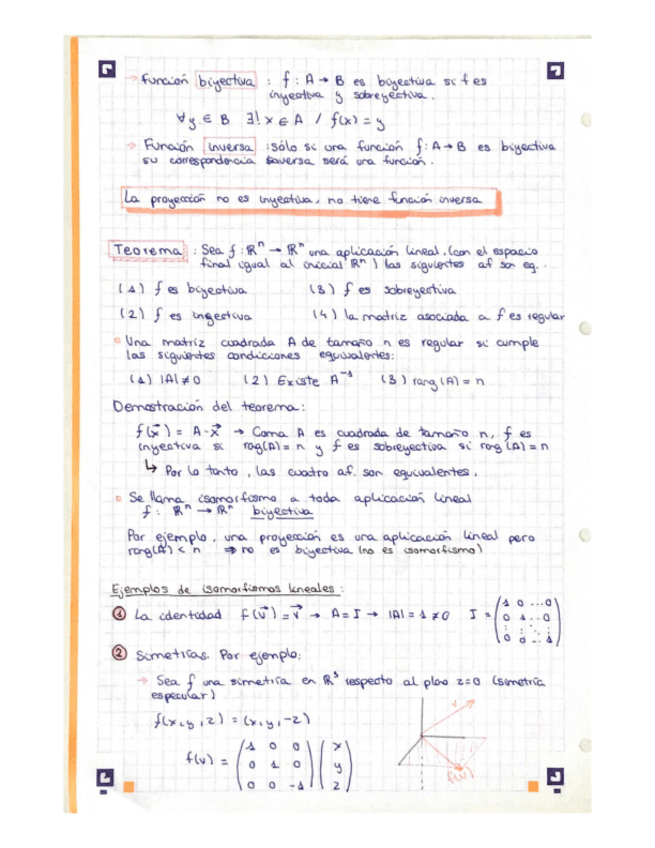 → Función biyectiva : f : A → B es biyectiva si f es
inyectiva y sobreyectiva.
∀y ∈ B ∃! x ∈ A / f(x) = y
→ Función inversa : sólo si una función f: A → B es biyectiva
su correspondencia inversa será una función.
La proyección no es inyectiva, no tiene función inversa
Teorema : Sea f : ℝⁿ → ℝⁿ una aplicación lineal, (con el espacio
final igual al inicial ℝⁿ) las siguientes af son eq.
(1) f es biyectiva (3) f es sobreyectiva
(2) f es inyectiva (4) la matriz asociada a f es regular
Una matriz cuadrada A de tamaño n es regular si cumple
las siguientes condiciones equivalentes:
(1) |A| ≠ 0 (2) Existe A⁻¹ (3) rang (A) = n
Demostración del teorema:
f(x⃗) = A · x⃗ → Como A es cuadrada de tamaño n, f es
inyectiva si rag(A) = n y f es sobreyectiva si rang (A) = n
↳ Por lo tanto, las cuatro af. son equivalentes.
Se llama isomorfismo a toda aplicación lineal
f : ℝⁿ → ℝⁿ biyectiva
Por ejemplo, una proyección es una aplicación lineal pero
rang(A) < n ⇒ no es biyectiva (no es isomorfismo)
Ejemplos de isomorfismos lineales:
1 La identidad f(v⃗) = v⃗ → A = I → |A| = 1 ≠ 0 I = (1 0 ... 0
0 1 .. 0
: : ⋱ :
0 0 .. 1)
2 Simetrías. Por ejemplo:
→ Sea f una simetría en ℝ³ respecto al plano z=0 (simetría
especular)
f(x, y, z) = (x, y, -z)
v
f(v) = (1 0 0
0 1 0
0 0 -1) (x
y
z)
f(v)